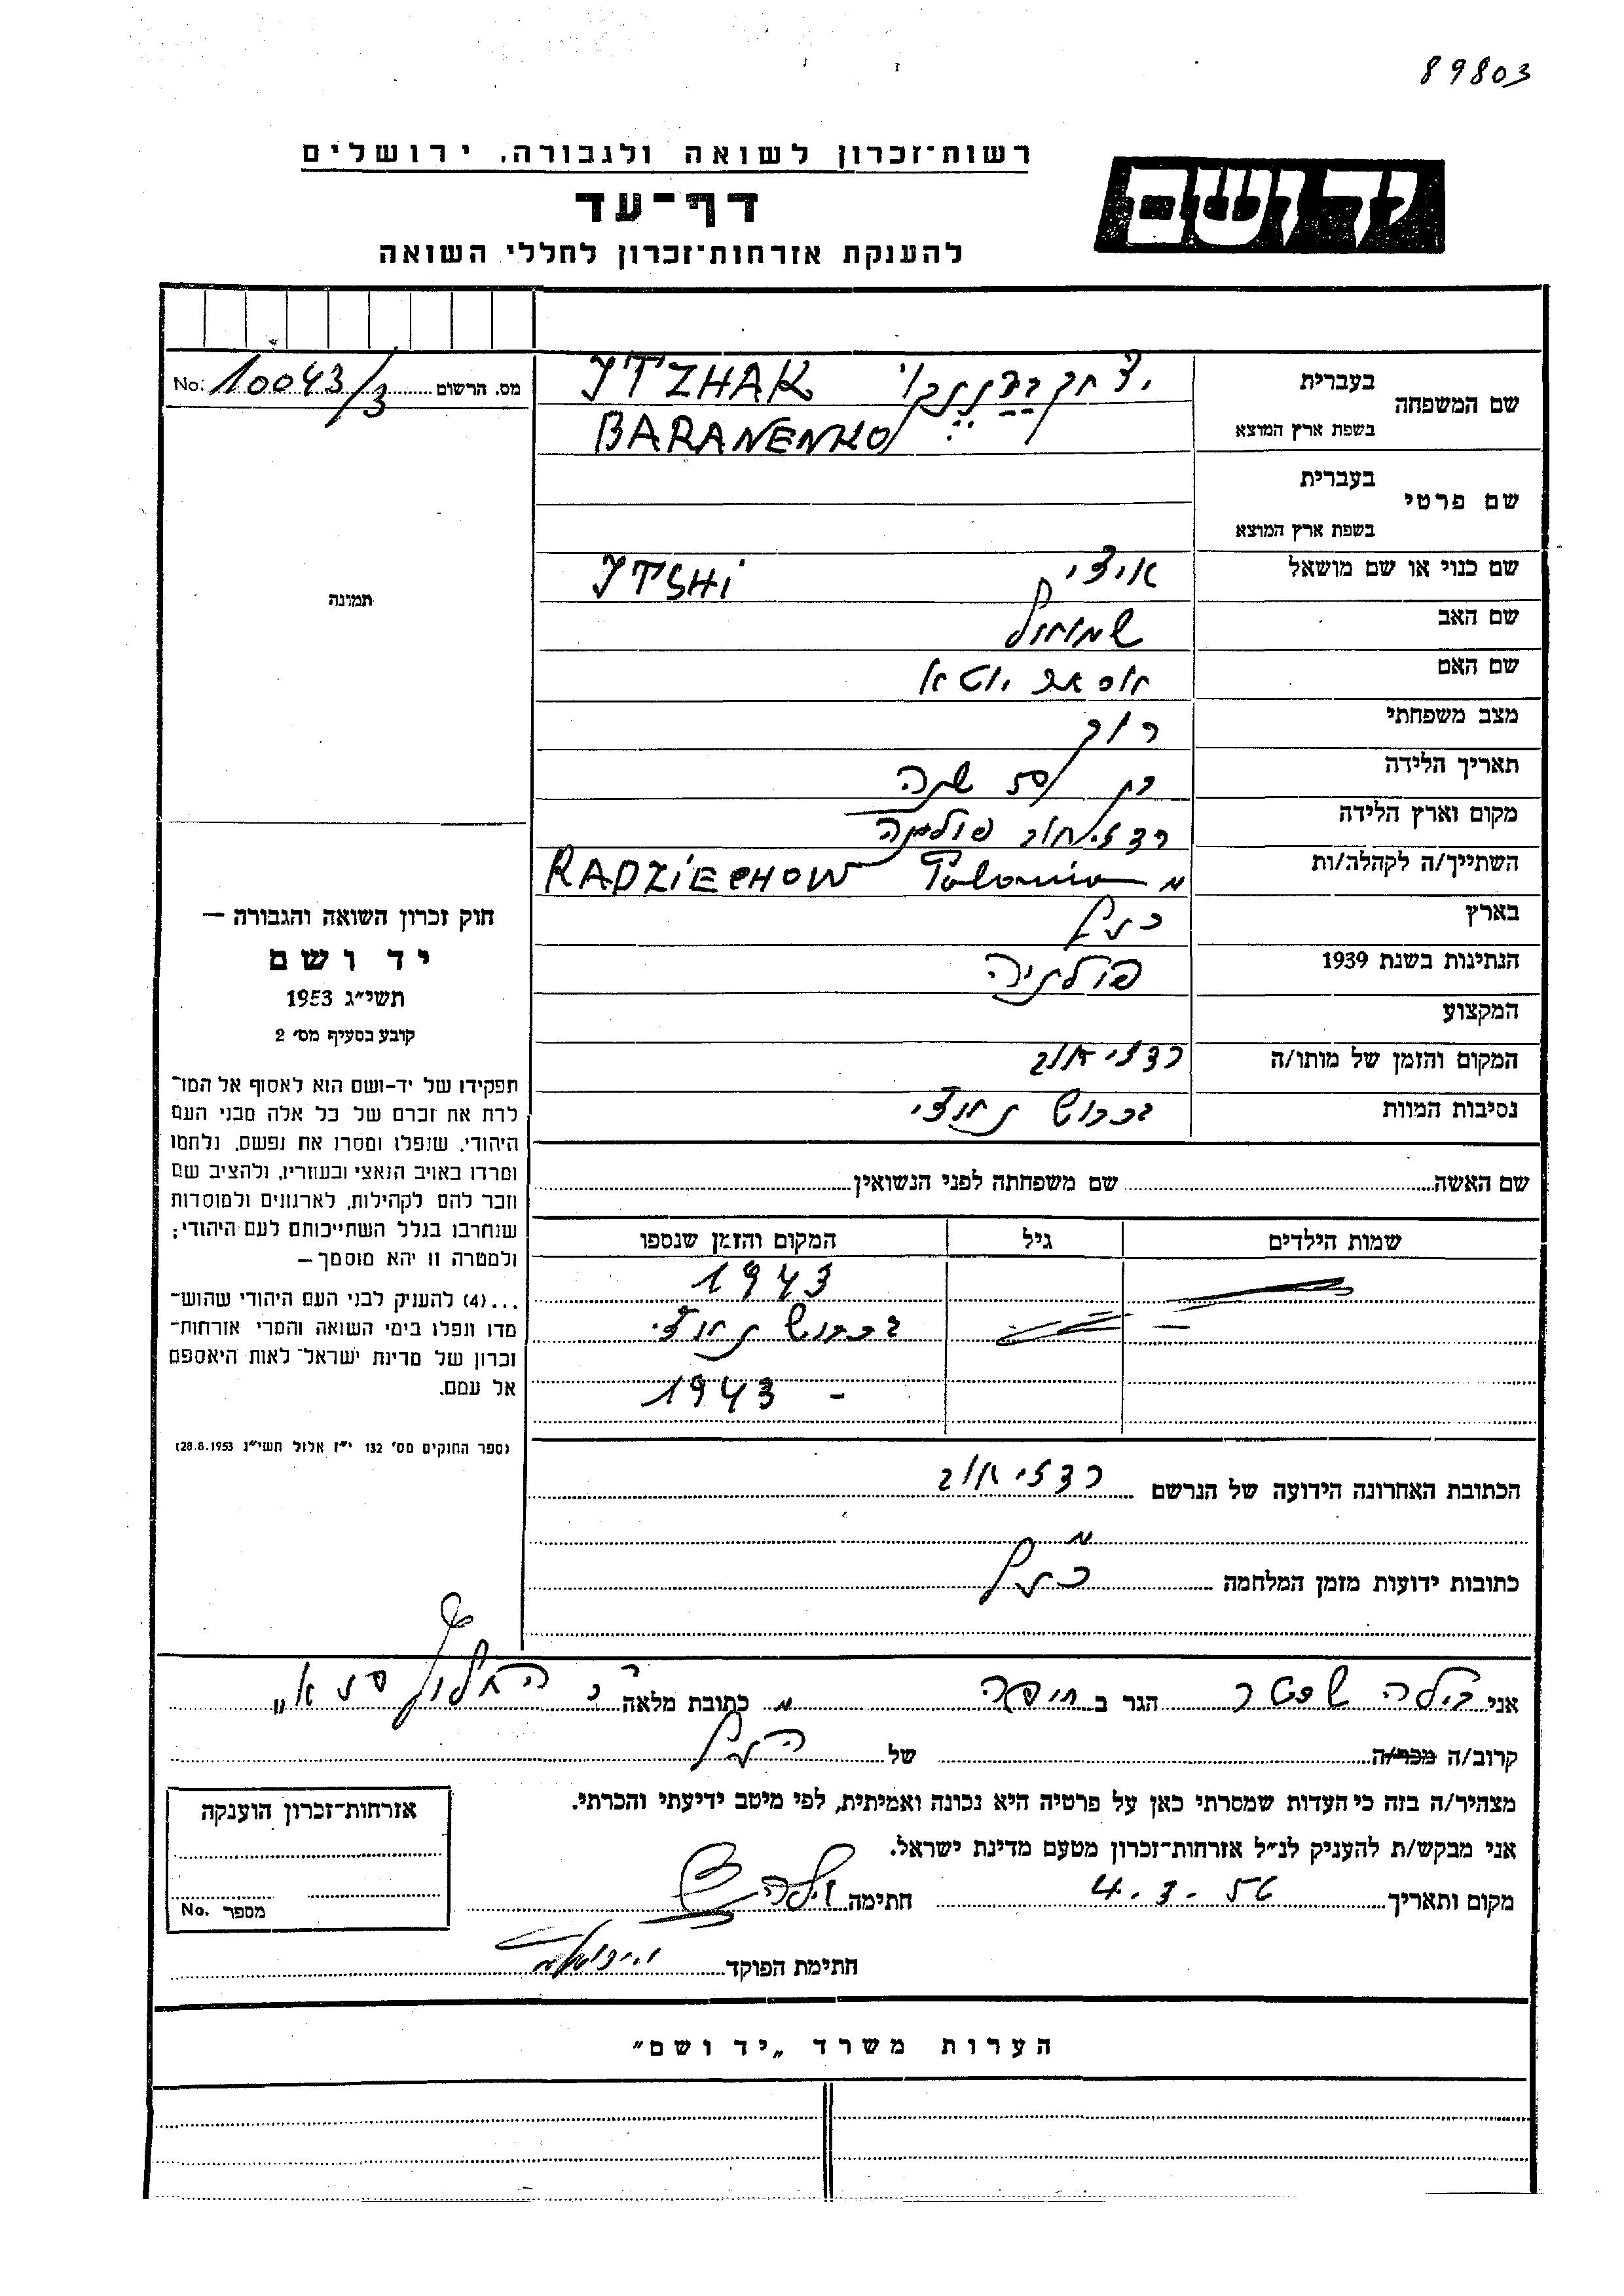 89803
יד ושם
רשות-זכרון לשואה ולגבורה, ירושלים
דף-עד
להענקת אזרחות-זכרון לחללי השואה
מס. הרשום 10043/3 No:
שם המשפחה
בעברית יצחק ITZHAK
בשפת ארץ המוצא BARANENKO
שם פרטי
בעברית
בשפת ארץ המוצא
שם כנוי או שם מושאל איצי ITSHI
שם האב שמואל
שם האם
מצב משפחתי רווק
תאריך הלידה בן שנה
מקום וארץ הלידה פולניה
השתייך/ה לקהלה/ות RADZIECHOW Polonia
בארץ כנ"ל
הנתינות בשנת 1939 פולניה
המקצוע
המקום והזמן של מותו/ה רדזיאוב
נסיבות המוות בכבוש נאצי
שם האשה שם משפחתה לפני הנשואין
שמות הילדים גיל המקום והזמן שנספו
1943
בכבוש נאצי
1943 -
הכתובת האחרונה הידועה של הנרשם רדזיאוב
כתובות ידועות מזמן המלחמה כנ"ל
תמונה
חוק זכרון השואה והגבורה —
יד ושם
תשי״ג 1953
קובע בסעיף מס׳ 2
תפקידו של יד-ושם הוא לאסוף אל המו־
לדת את זכרם של כל אלה מבני העם
היהודי, שנפלו ומסרו את נפשם, נלחמו
ומרדו באויב הנאצי ובעוזריו, ולהציב שם
וזכר להם לקהילות, לארגונים ולמוסדות
שנחרבו בגלל השתייכותם לעם היהודי;
ולמטרה זו יהא מוסמך —
...(4) להעניק לבני העם היהודי שהוש־
מדו ונפלו בימי השואה והמרי אזרחות־
זכרון של מדינת ישראל לאות היאספם
אל עמם.
(ספר החוקים מס׳ 132 י״ז אלול תשי״ג 28.8.1953)
אני בילה הגר ב חיפה כתובת מלאה
קרוב/ה מכר/ה של הנ"ל
מצהיר/ה בזה כי העדות שמסרתי כאן על פרטיה היא נכונה ואמיתית, לפי מיטב ידיעתי והכרתי.
אני מבקש/ת להעניק לנ״ל אזרחות־זכרון מטעם מדינת ישראל.
מקום ותאריך 4.3.56 חתימה
חתימת הפוקד
אזרחות־זכרון הוענקה
מספר No.
הערות משרד „יד ושם״